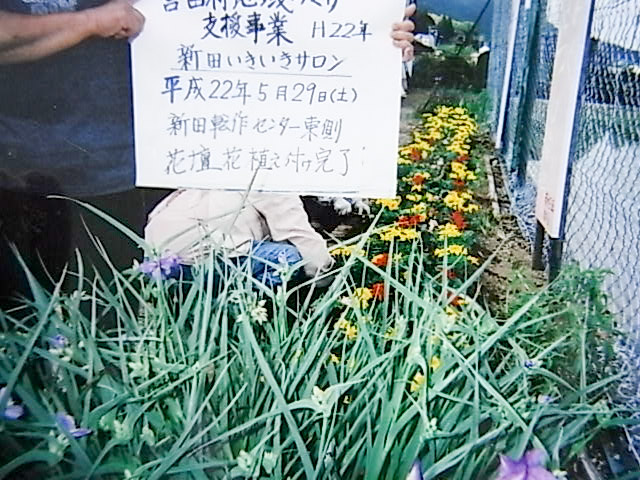 支援事業 H22年
新田いきいきサロン
平成22年5月29日(土)
新田転作センター東側
花壇 花植え付け完了!